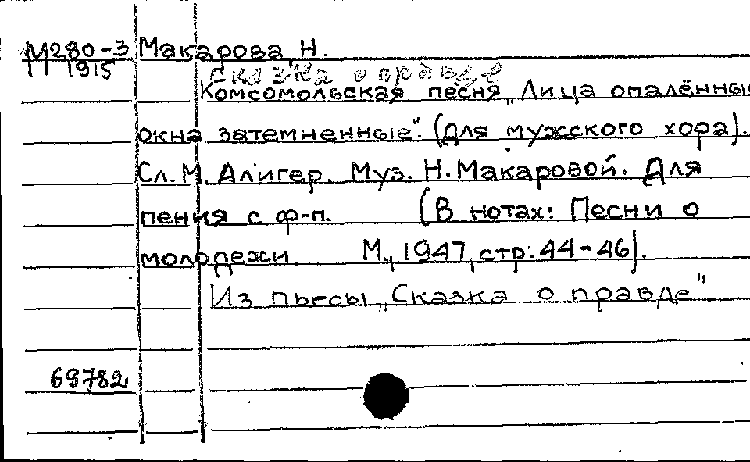 М280-3 Макарова Н.
1915 Сказка о правде
Комсомольская песня „Лица опалённые
окна затемненные". (Для мужского хора).
Сл. М. Алигер. Муз. Н. Макаровой. Для
пения с ф-п. (В нотах: Песни о
молодежи. М., 1947, стр. 44-46).
Из пьесы „Сказка о правде"
69782